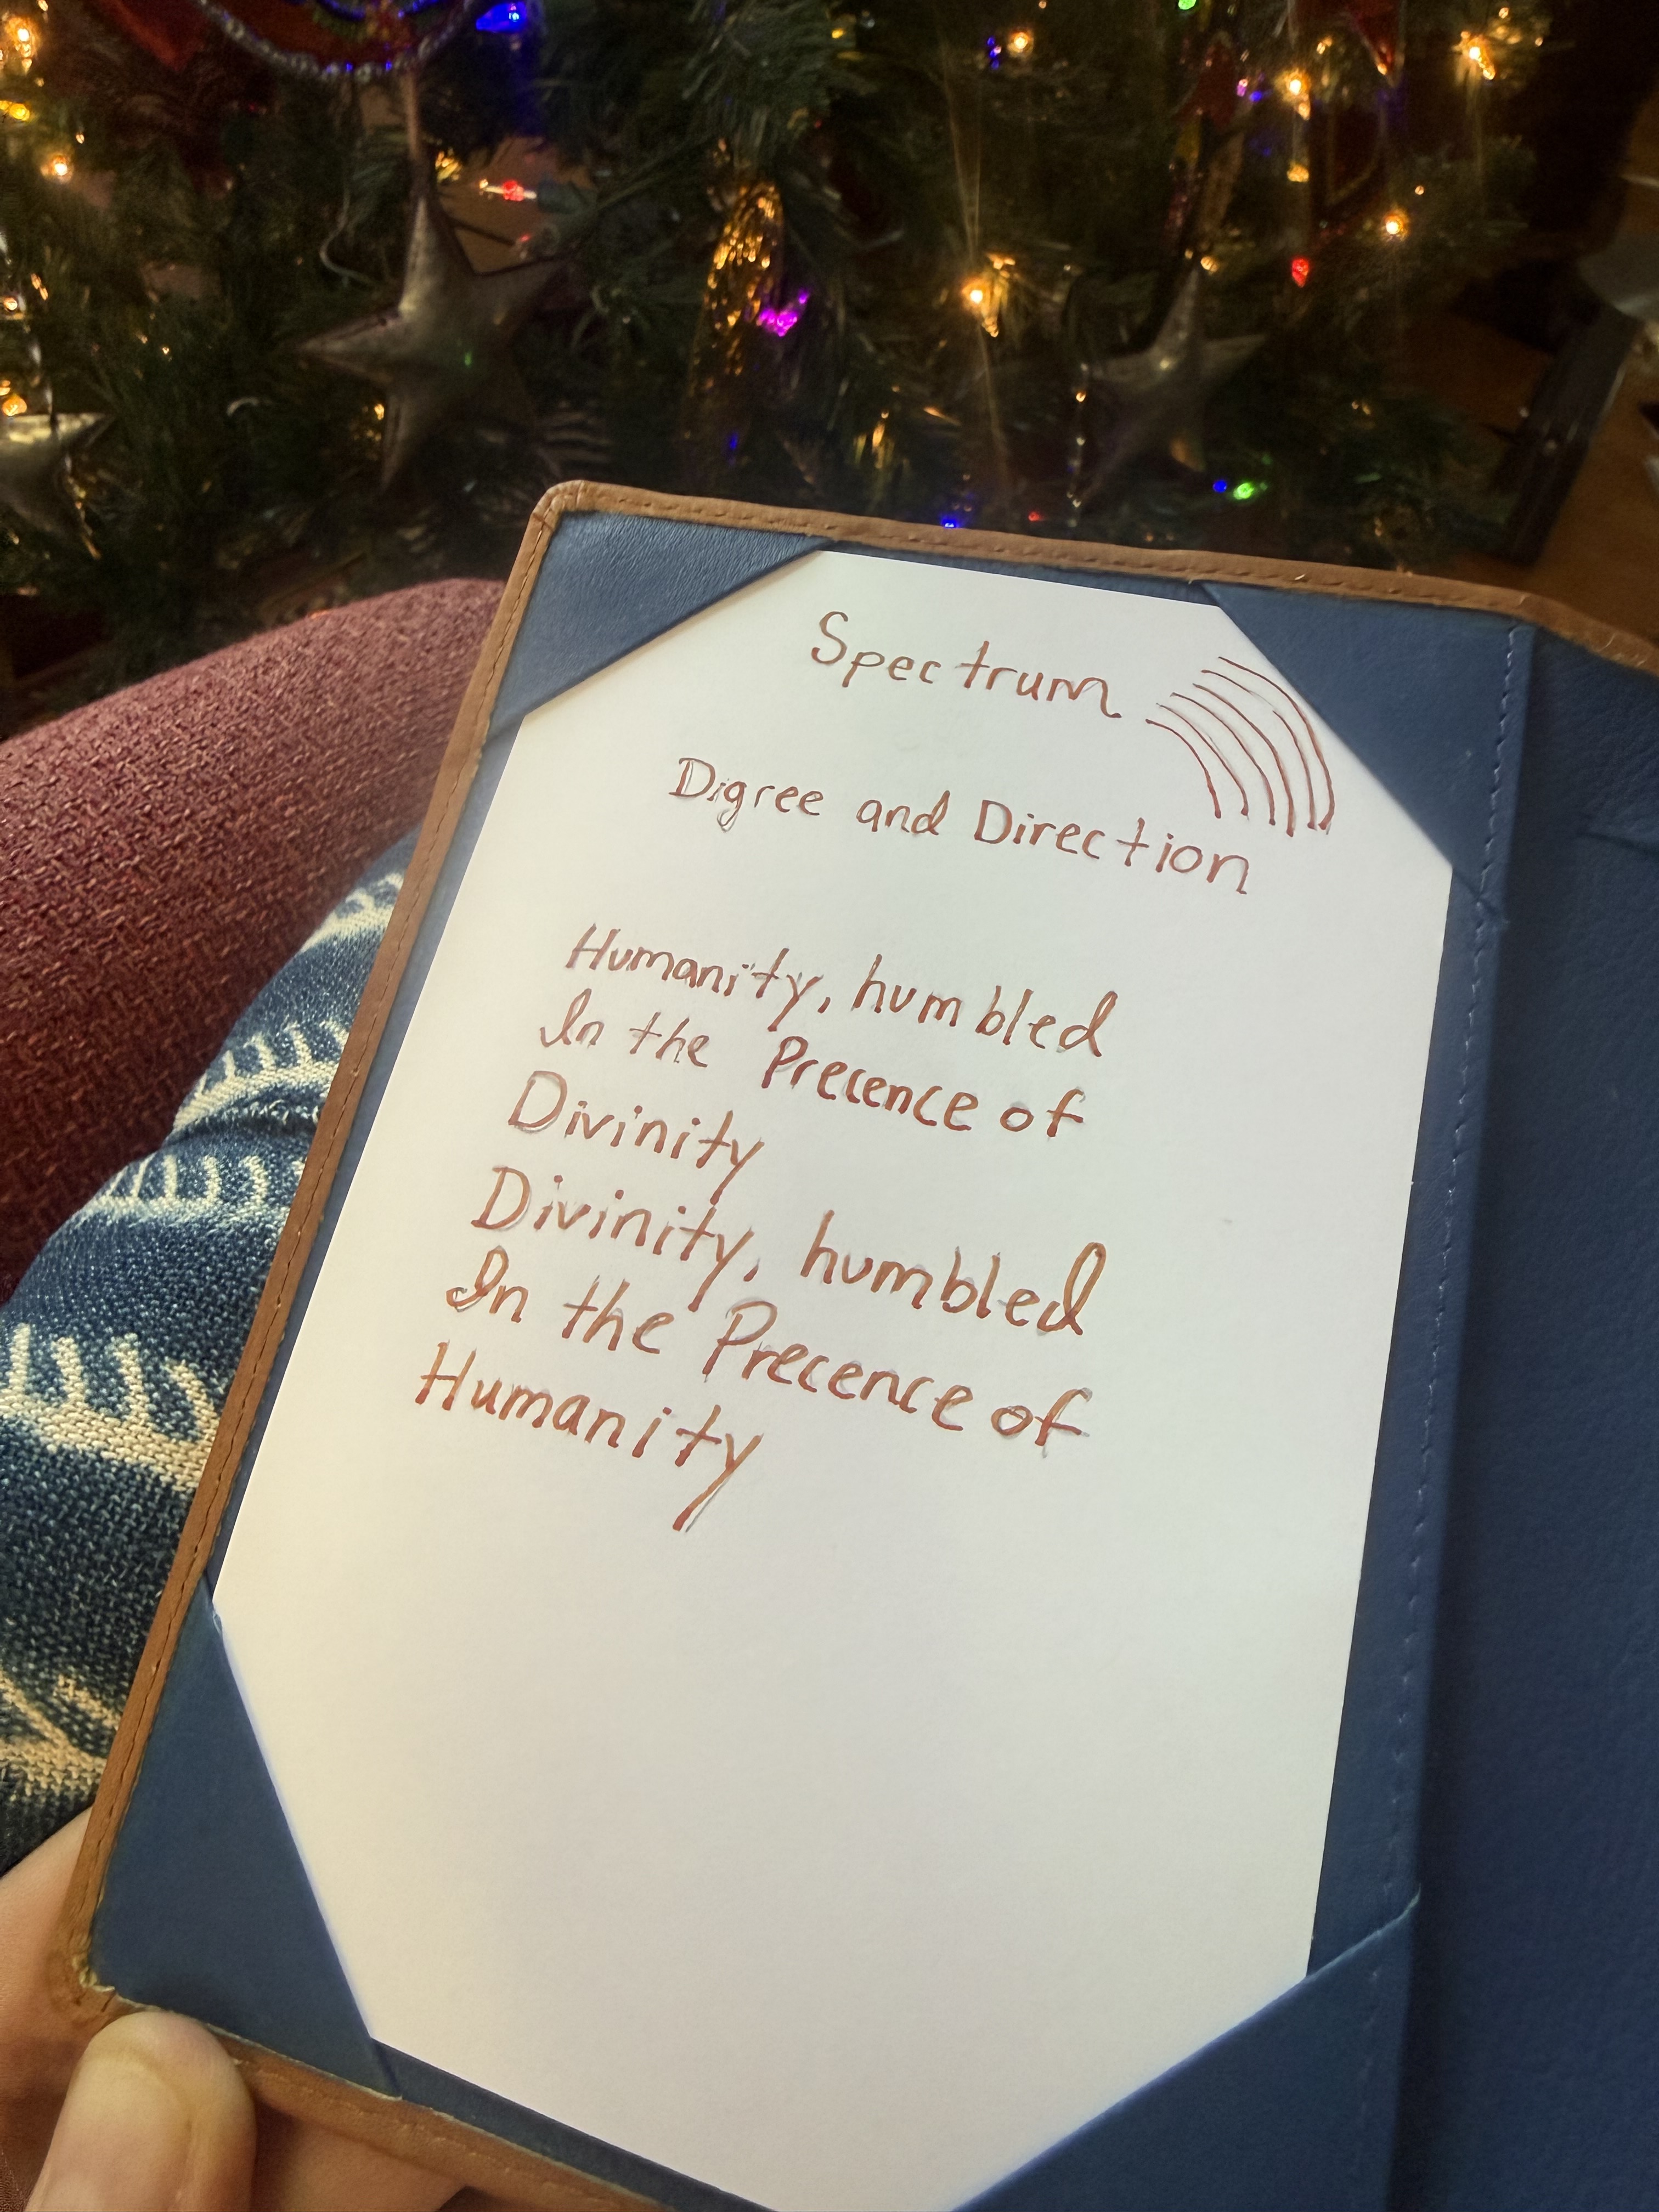 Spectrum
Digree and Direction
Humanity, humbled
In the Precence of
Divinity
Divinity, humbled
In the Precence of
Humanity